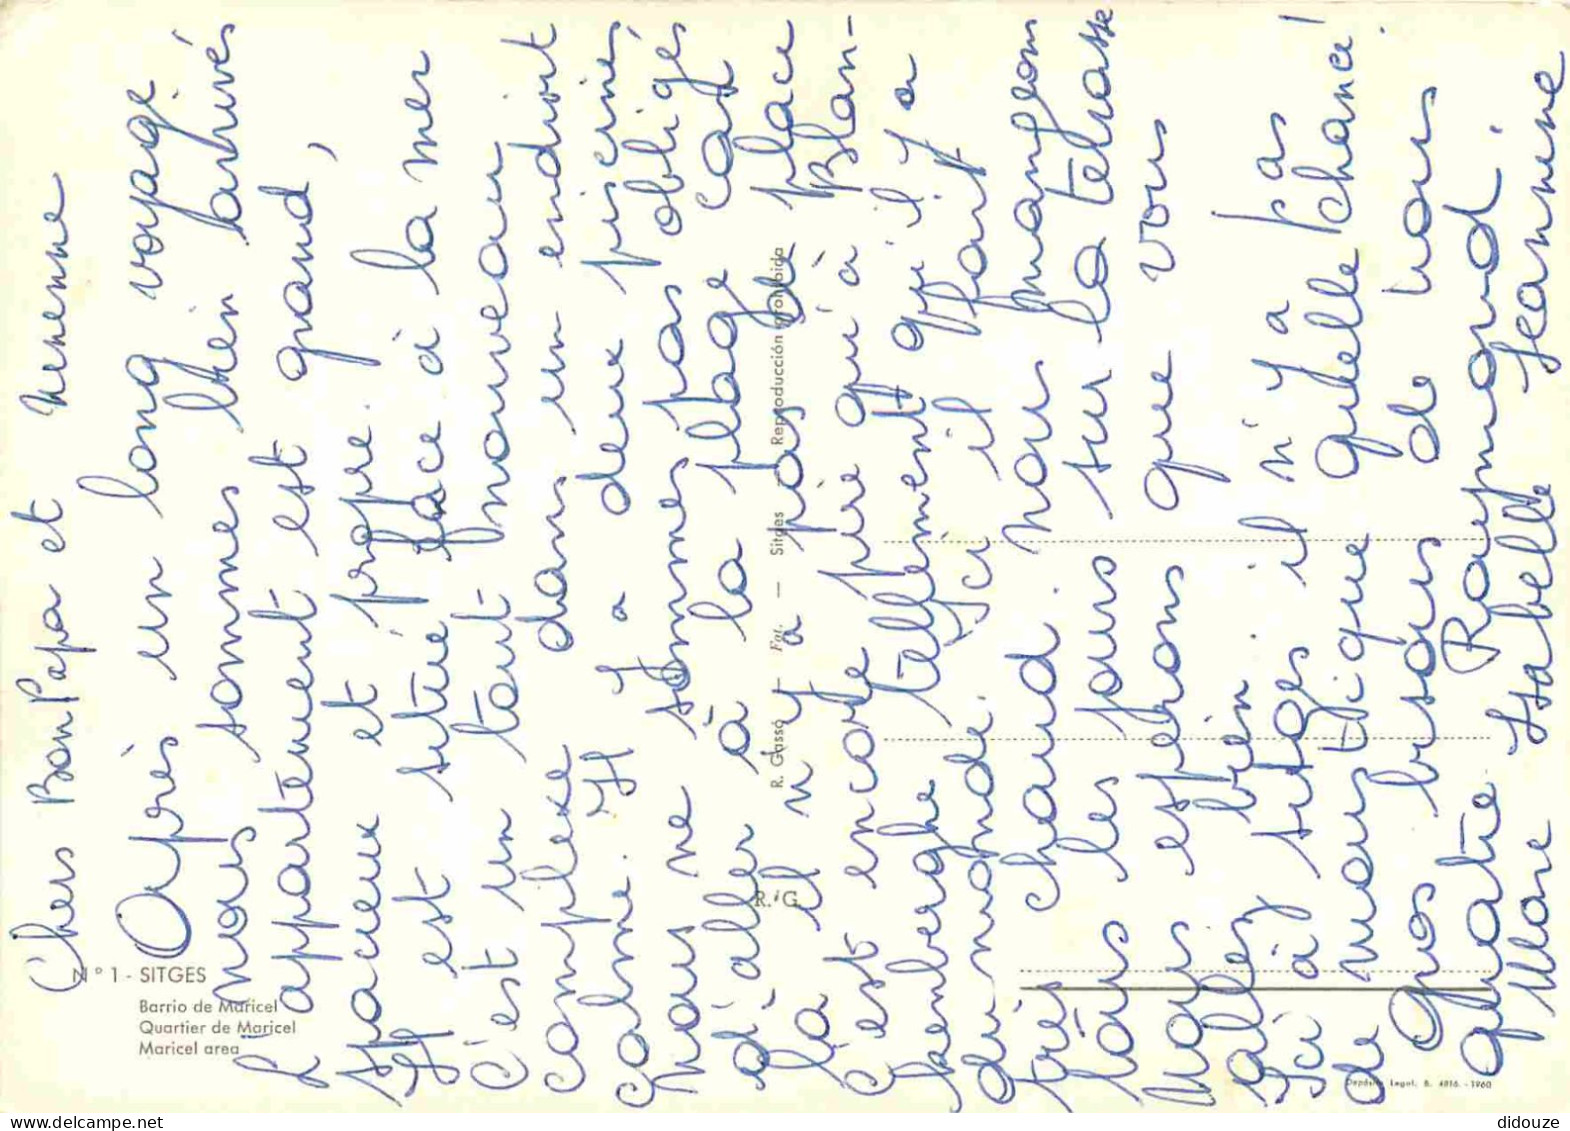 Chers Bon Papa et Nénenne
Après un long voyage
nous sommes bien arrivés
l'appartement est grand,
spacieux et propre.
Il est situé face à la mer
C'est un tout nouveau
complexe dans un endroit
calme. Il y a deux piscines
Nous ne sommes pas obligés
d'aller à la plage car
là il n'y a pas de place
C'est encore pire qu'à Blan-
kenberghe tellement qu'il y a
du monde. Ici il fait
très chaud. nous mangeons
tous les jours sur la terrasse
Nous espérons que vous
allez bien.
Ici à sitges il n'y a pas
de moustique quelle chance!
Gros bisous de nous
quatre Raymond.
Marc Isabelle Jeannine
N° 1 - SITGES
Barrio de Maricel
Quartier de Maricel
Maricel area
R. G.
R. Gassó - Fot. - Sitges Reproducción prohibida
Depósito Legal. B. 4816. - 1960
didouze